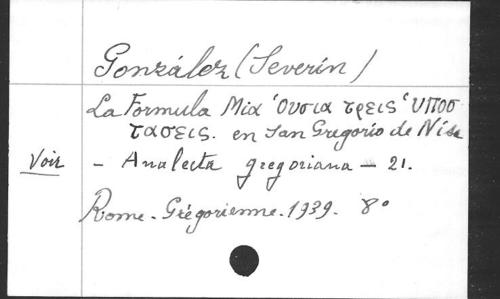 González (Severín)
La Formula Μια ‘Ουσια τρεις ‘υποσ
τασεις. en San Gregorio de Nisa
Voir – Analecta gregoriana – 21.
Rome. Grégorienne. 1939. 8°